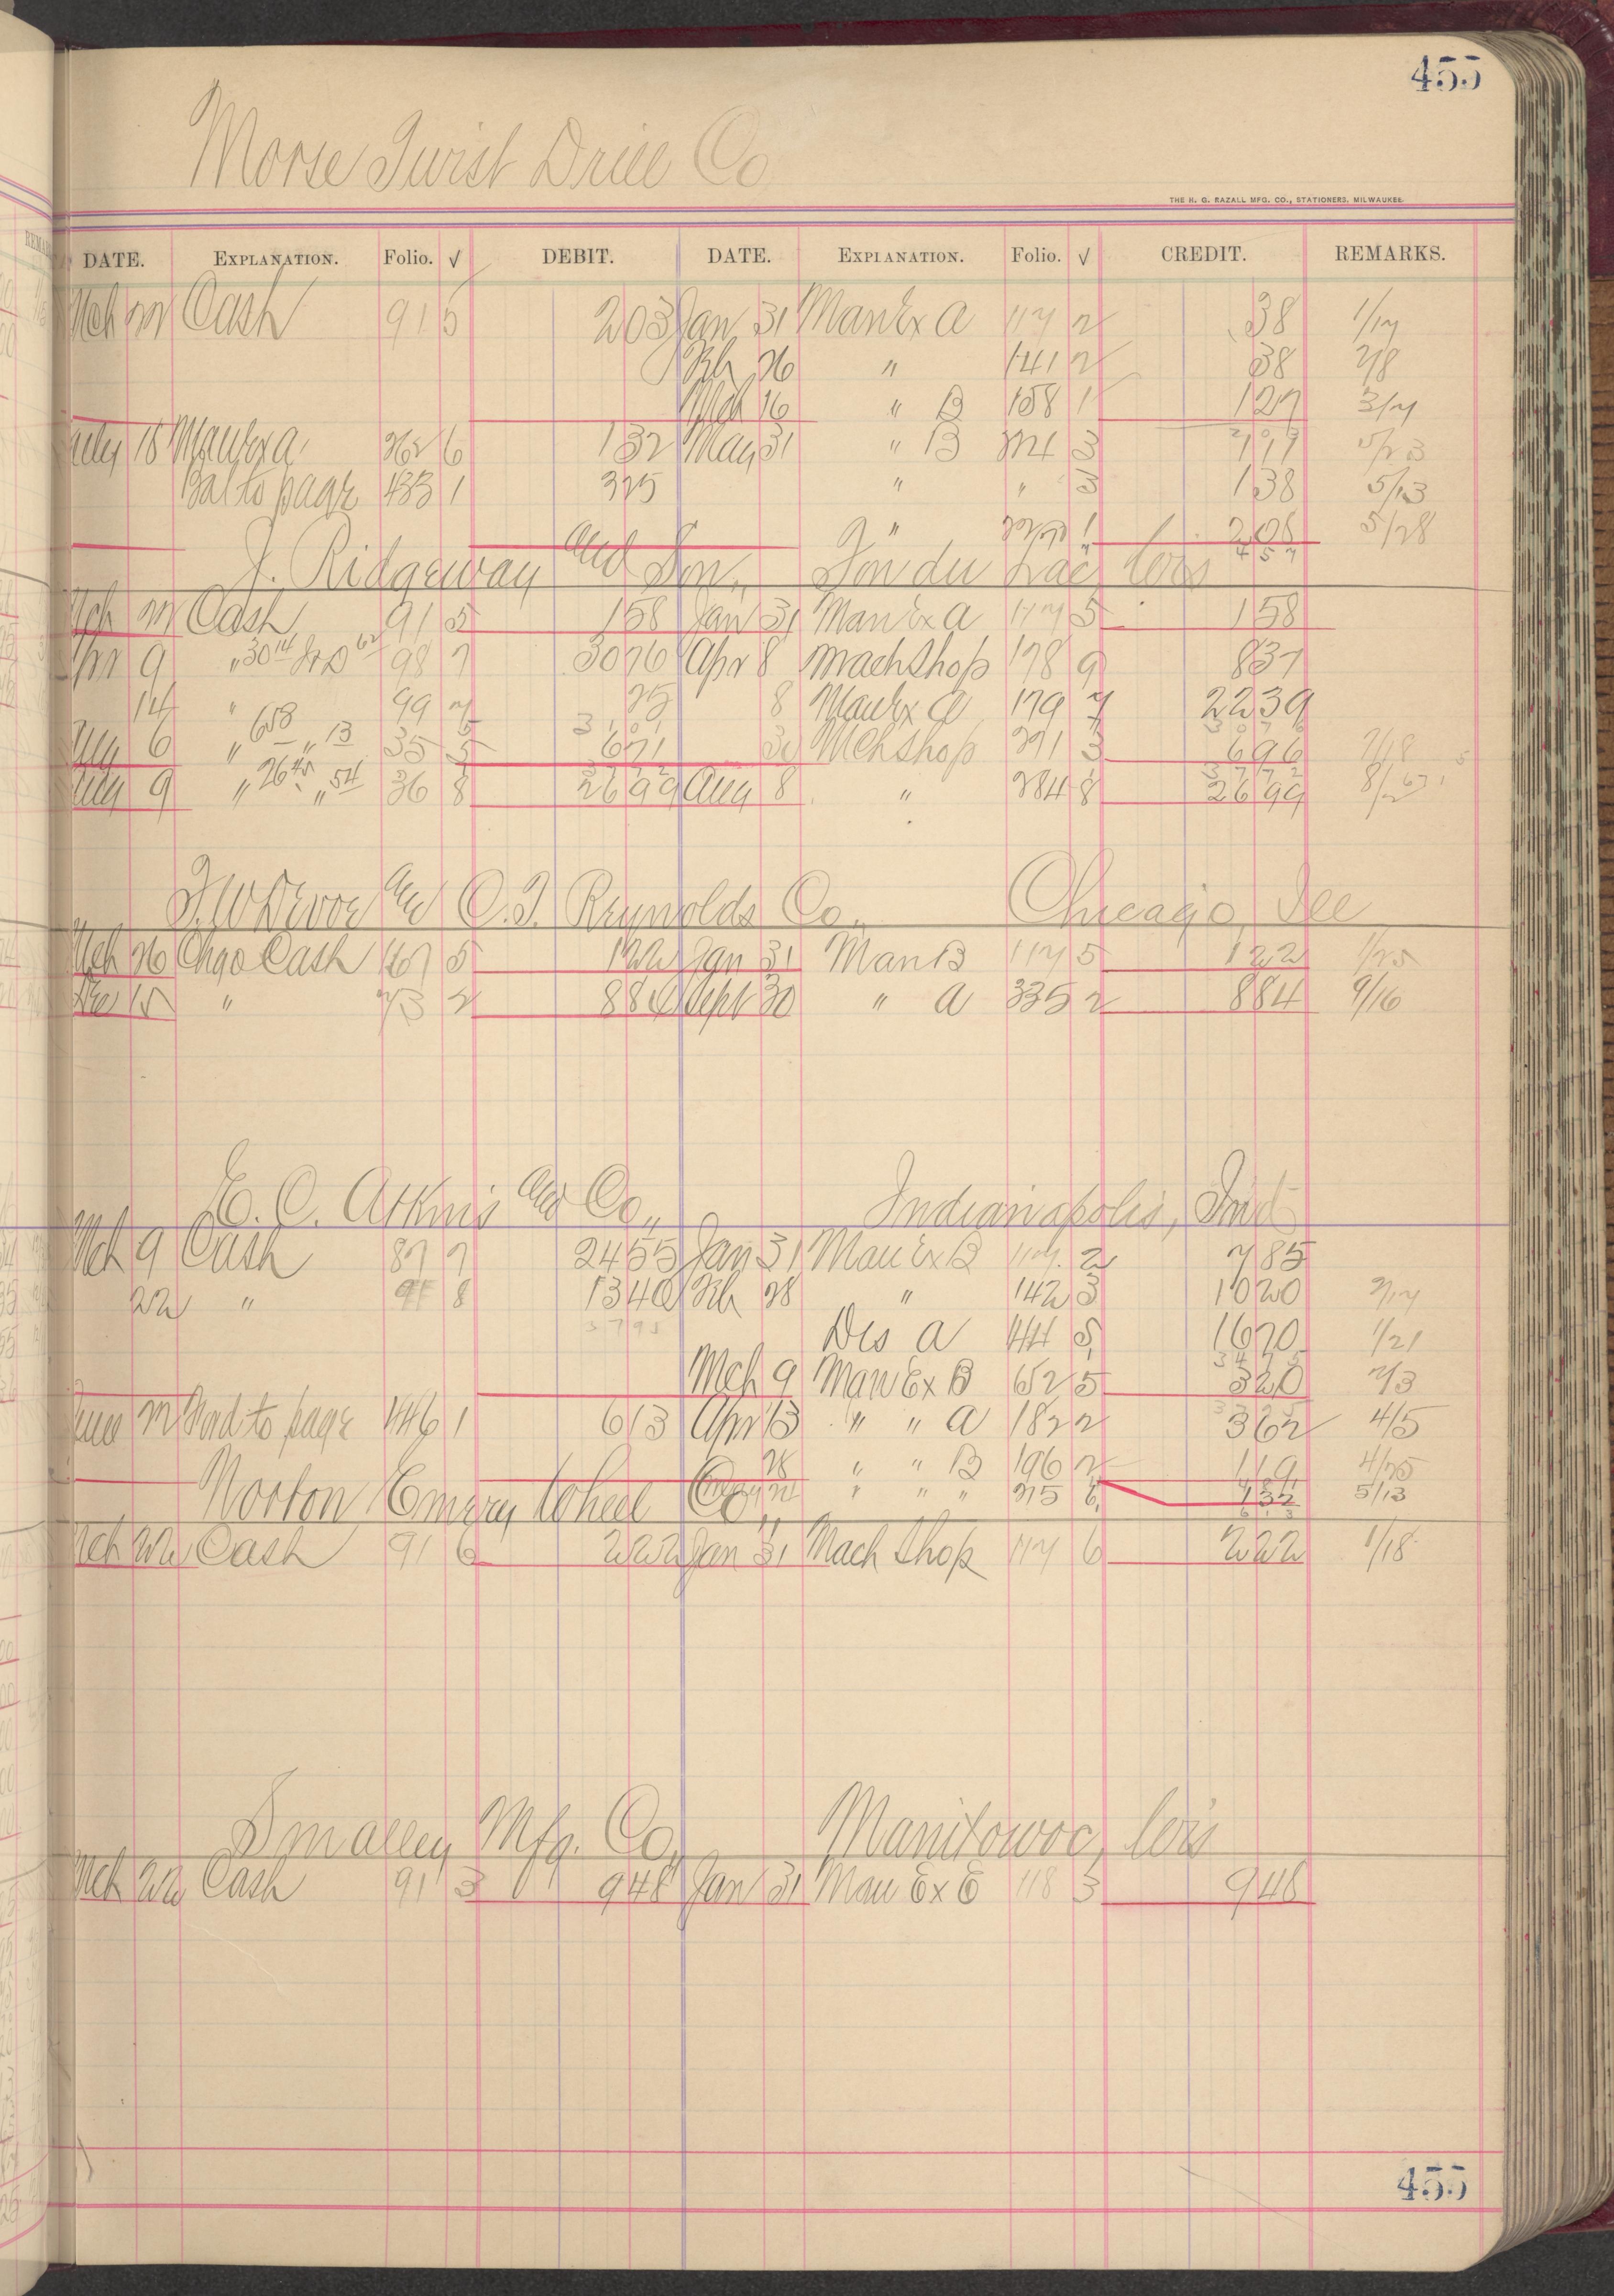 455
Morse Twist Drill Co
THE H. G. RAZALL MFG. CO., STATIONERS, MILWAUKEE
DATE. EXPLANATION. Folio. √ DEBIT. DATE. EXPLANATION. Folio. √ CREDIT. REMARKS.
Mch 22 Cash 91 5 203 Jan 31 Man Ex A 117 2 38 1/17
Feb 26 " 141 2 38 2/8
Mch 16 " B 158 1 127 3/7
July 18 Man Ex a 262 6 132 May 31 " B 3
Bal to page 433 1 325 " " 3 138 5/13
" 1 208 5/28
457
J. Ridgeway and Son, Fon du Lac Wis
Mch 22 Cash 91 5 158 Jan 31 Man Ex A 117 5 158
Apr 9 " 30 14 62 98 7 3076 Apr 8 Mach Shop 178 9 837
14 " 99 7 25 8 Man Ex a 179 7 2239
6 " 658 " 13 35 5 671 Mch Shop 271 3 696 7/18
Aug 9 " 26 45 " 54 36 8 2699 Aug 8 " 284 8 2699
F. W Devoe and C. T. Reynolds Co., Chicago, Ill
Mch 26 Chgo Cash 167 5 122 Jan 31 Man B 117 5 122 1/25
Dec 15 " 73 2 884 Sept 30 " A 335 2 884 9/16
E. C. Atkins and Co., Indianapolis, Ind
Mch 9 Cash 87 7 2455 Jan 31 Man Ex B 117 2 785
22 " 91 8 1340 Feb 28 " 142 3 1020 2/17
3795 Des A 144 5 1670 1/21
3475
Mch 9 Man Ex B 152 5 320 2/3
June 22 Ford to page 446 1 613 Apr 13 " " A 182 2 362 4/5
28 " " B 196 2 119 4/25
Norton Emery Wheel Co., " " " 215 6 132 5/13
Mch 22 Cash 91 6 222 Jan 31 Mach Shop 117 6 222 1/18
Smalley Mfg. Co, Manitowoc, Wis
Mch 22 Cash 91 3 948 Jan 31 Man Ex E 118 3 948
455